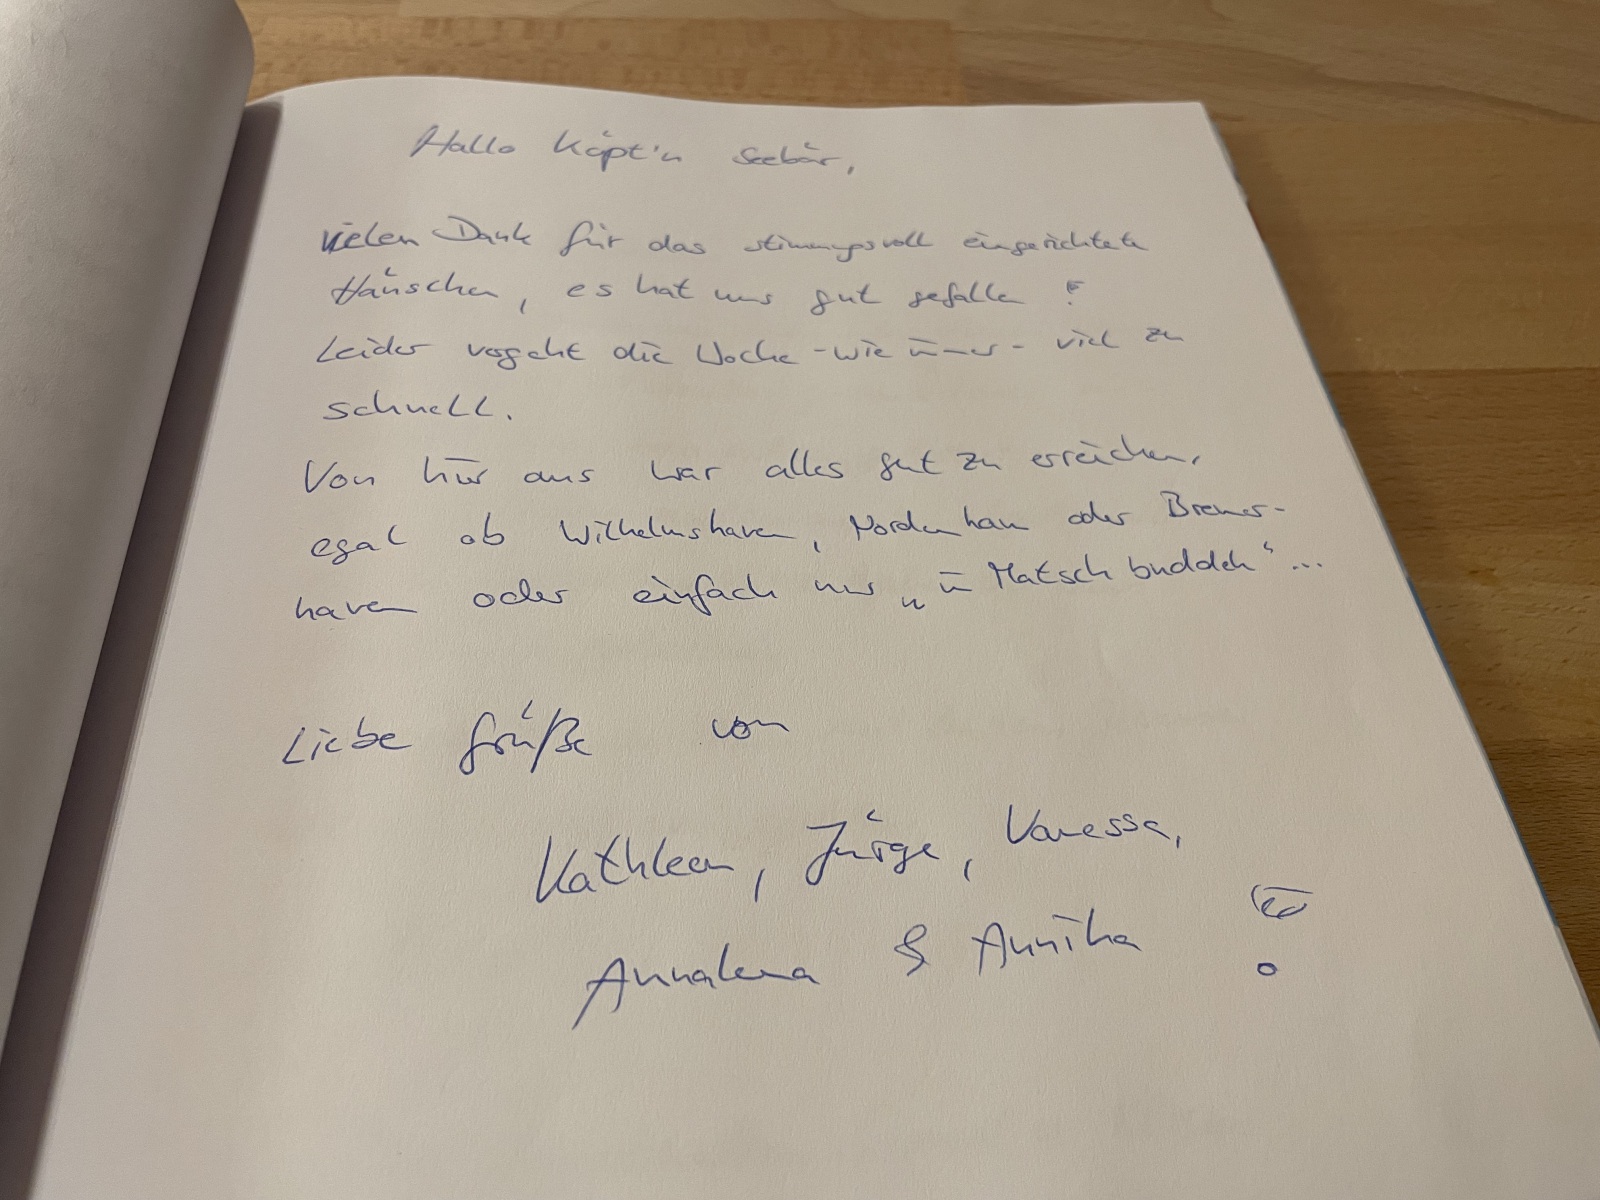 Hallo Käpt'n Seebär,
vielen Dank für das stimmungsvoll eingerichtete
Häuschen, es hat uns gut gefallen!
Leider vergeht die Woche - wie immer - viel zu
schnell.
Von hier aus war alles gut zu erreichen,
egal ob Wilhelmshaven, Nordenham oder Bremer-
haven oder einfach nur „im Matsch buddeln“...
Liebe Grüße von
Kathleen, Jürge, Vanessa,
Annalena & Annika !